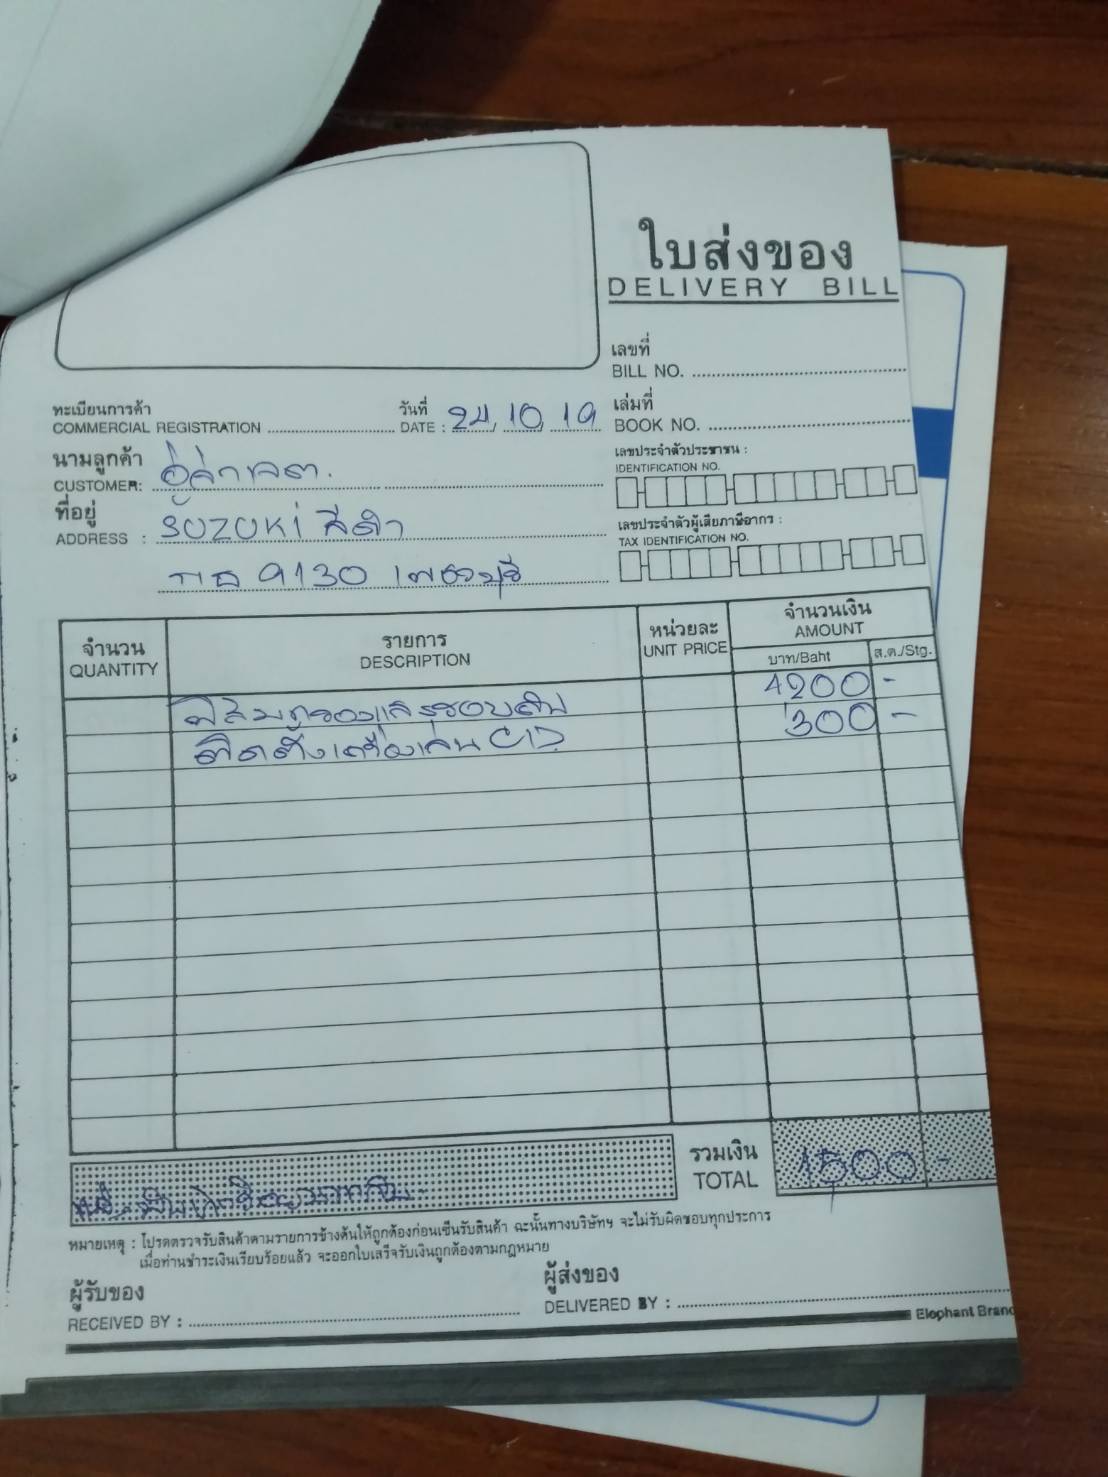 ใบส่งของ
DELIVERY BILL
เลขที่
BILL NO.
ทะเบียนการค้า
COMMERCIAL REGISTRATION
วันที่
DATE : 24, 10, 19
เล่มที่
BOOK NO.
นามลูกค้า
CUSTOMER:
เลขประจำตัวประชาชน :
IDENTIFICATION NO.
ที่อยู่
ADDRESS : SUZUKI สีดำ
เลขประจำตัวผู้เสียภาษีอากร :
TAX IDENTIFICATION NO.
9130 เพชรบุรี
จำนวน
QUANTITY
รายการ
DESCRIPTION
หน่วยละ
UNIT PRICE
จำนวนเงิน
AMOUNT
บาท/Baht
ส.ต./Stg.
ฟิล์มกรองแสงรอบคัน 1200 -
ติดตั้งเครื่องเล่น 300 -
รวมเงิน
TOTAL
1500 -
หมายเหตุ : โปรดตรวจรับสินค้าตามรายการข้างต้นให้ถูกต้องก่อนเซ็นรับสินค้า ฉะนั้นทางบริษัทฯ จะไม่รับผิดชอบทุกประการ
เมื่อท่านชำระเงินเรียบร้อยแล้ว จะออกใบเสร็จรับเงินถูกต้องตามกฎหมาย
ผู้รับของ
RECEIVED BY :
ผู้ส่งของ
DELIVERED BY :
Elephant Brand